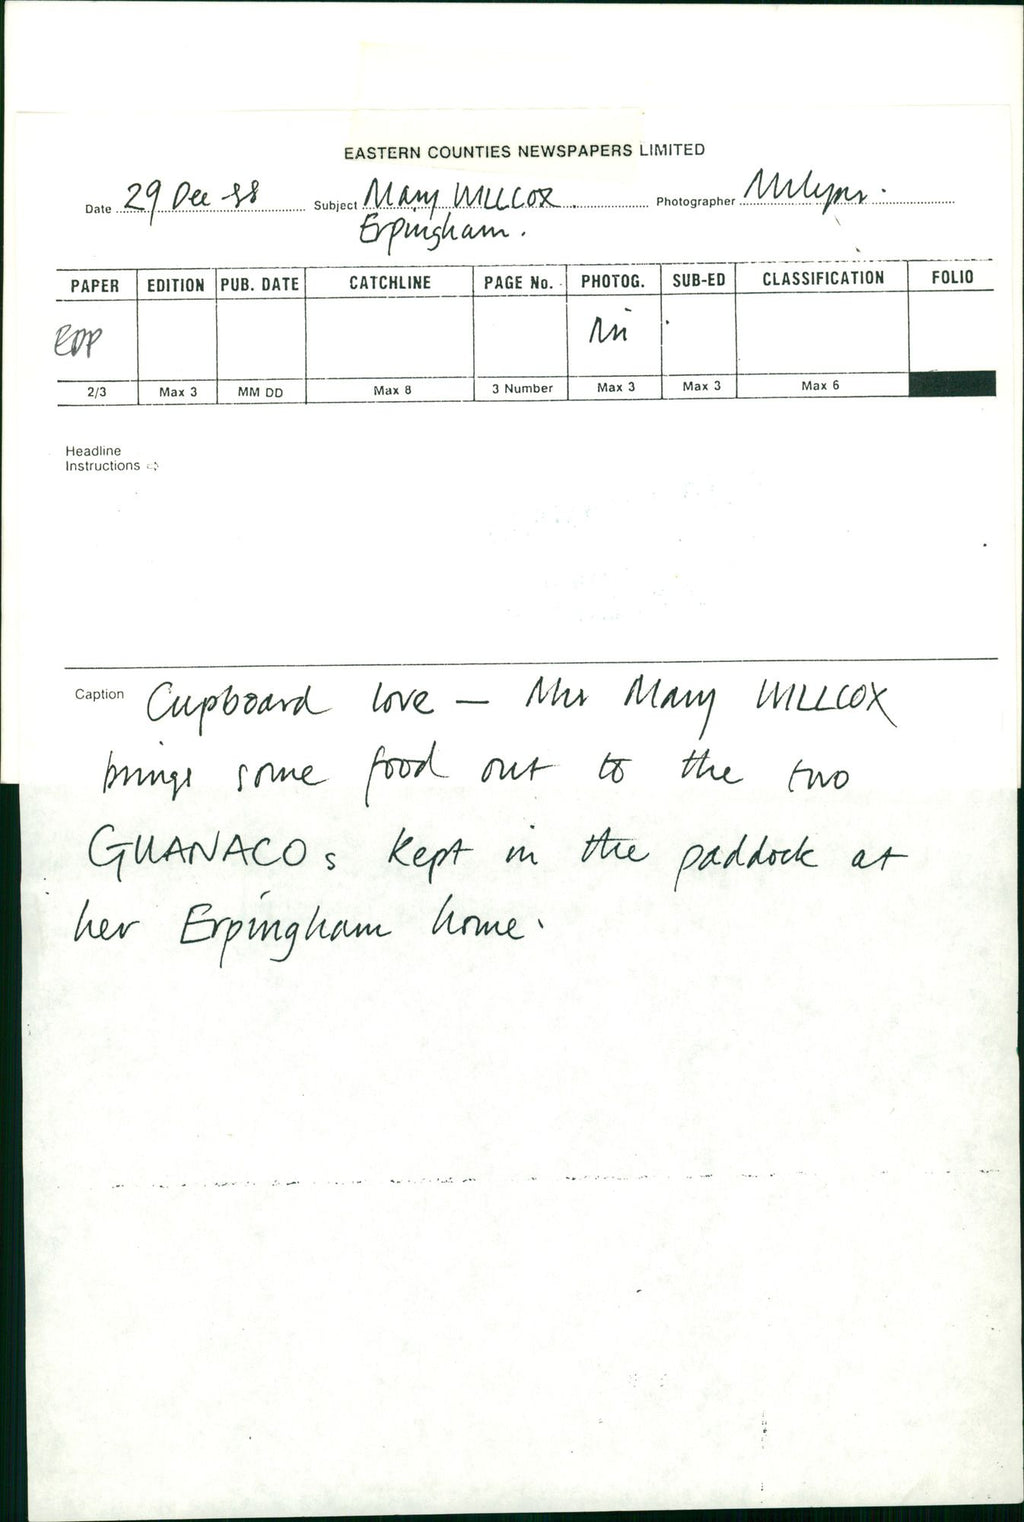 EASTERN COUNTIES NEWSPAPERS LIMITED
Date 29 Dec 88 Subject Mary WILLCOX Photographer
Erpingham.
PAPER EDITION PUB. DATE CATCHLINE PAGE No. PHOTOG. SUB-ED CLASSIFICATION FOLIO
EDP
2/3 Max 3 MM DD Max 8 3 Number Max 3 Max 3 Max 6
Headline
Instructions
Caption Cupboard love — Mrs Mary WILLCOX
brings some food out to the two
GUANACOs kept in the paddock at
her Erpingham home.